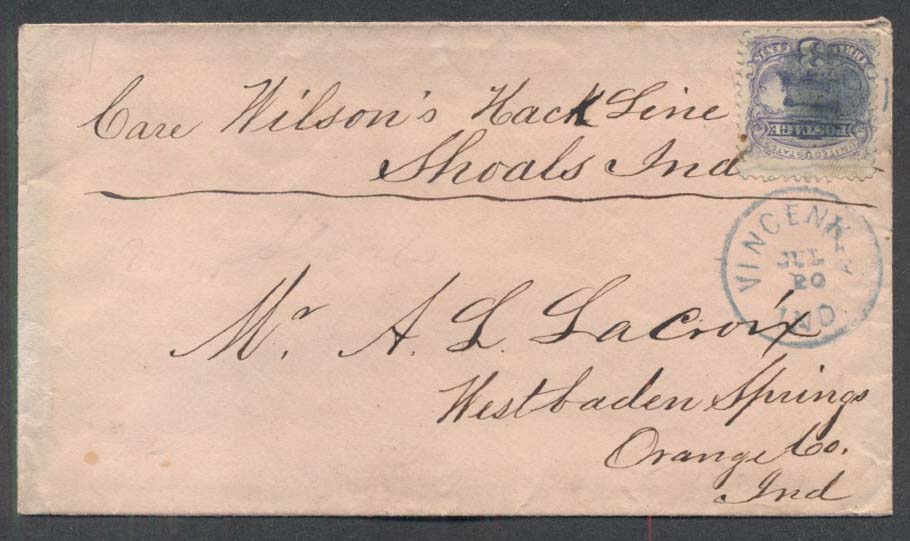 Care Wilson's Hack Line
Shoals Ind
UNITED STATES
POSTAGE
VINCENNES
JUL
20
IND.
Mr. A. L. Lacroix
Westbaden Springs
Orange Co.
Ind